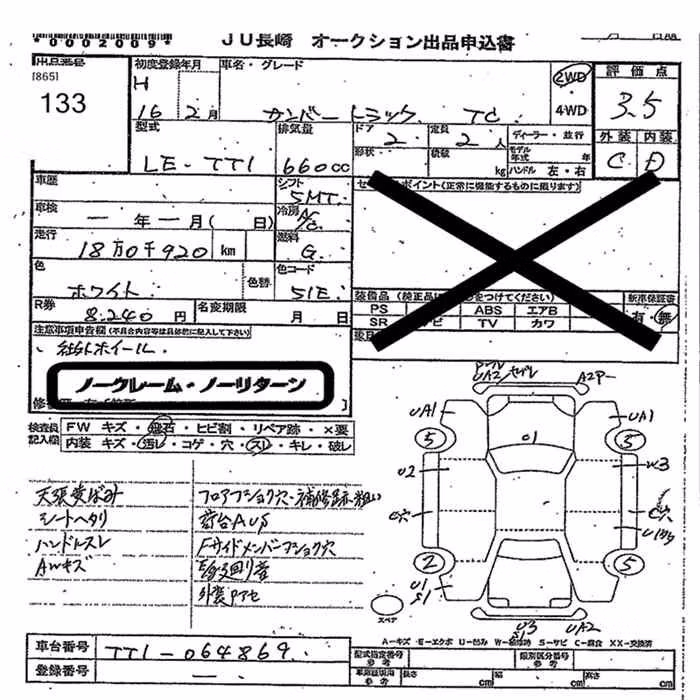 *0002009*
JU長崎 オークション出品申込書
出品番号
[865]
133
初度登録年月
H
16 2月
車名・グレード
サンバートラック TC
2WD
4WD
評価点
3.5
外装 内装
C D
型式
LE-TT1
排気量
660cc
ドア 2
定員 2人
形状
積載 kg
ディーラー・並行
モデル年式 年
ハンドル 左・右
車歴
シフト
5MT
車検
一年一月( 日)
冷房
A/C
走行
18万0千920 km
燃料
G
色
ホワイト
色替
色コード
51E
R券
8,240円
名変期限
月 日
ポイント(正常に機能するものに限ります)
装備品
PS
ABS
エアB
SR
TV
カワ
新車保証書
有・無
注意事項申告欄(不具合内容等は具体的に記入して下さい)
社外ホイール
ノークレーム・ノーリターン
検査員記入欄
FW キズ・飛石・ヒビ割・リペア跡・×要
内装 キズ・汚レ・コゲ・穴・スレ・キレ・破レ
天張黄ばみ
シートヘタリ
ハンドルスレ
AWキズ
フロアフショク穴・補修跡粗い
荷台AUS
Fサイドメンバーフショク穴
外装Pアセ
UA2
A2P
UA1
UA1
5
5
U1
U2
W3
C穴
C穴
2
5
U1
S1
U3
S1
UA2
スペア
A-キズ・E-エクボ U-凹み W-補修跡 S-サビ C-腐食 XX-交換済
車台番号
TT1-064869
登録番号
一
型式指定番号
参考
類別区分番号
参考
長さ cm
幅 cm
高さ cm